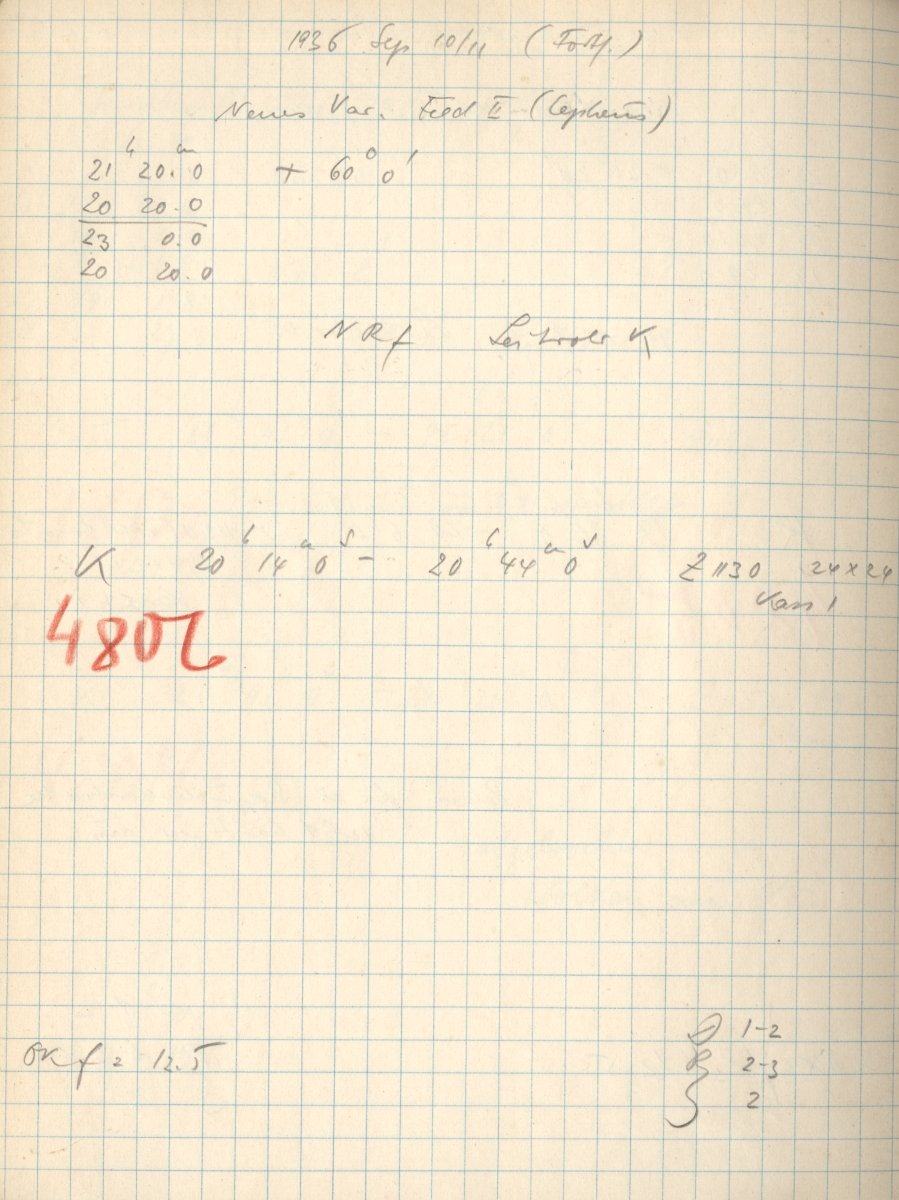 1936 Sep 10/11 (Forts.)
Neues Var. Feld II (Cepheus)
21ʰ 20.ᵐ0 + 60° 0'
20 20.0
23 0.0
20 20.0
NRf Leitrohr K
K 20ʰ 14ᵐ 0ˢ – 20ʰ 44ᵐ 0ˢ Z 1130 24×24
Kass 1
4802
f = 12.5
1-2
2-3
2